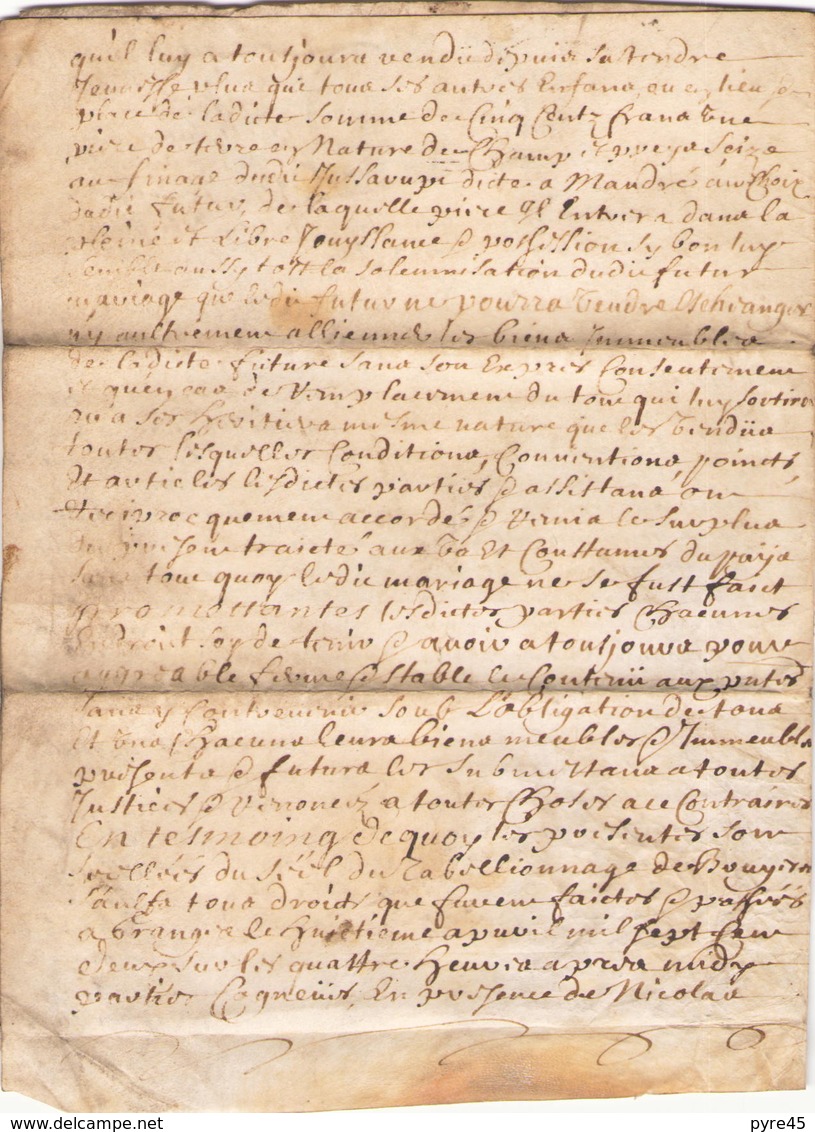 qu'il luy a tousjours rendü depuis sa tendre
Jeunesse plus que tous ses autres Enfans, ou en lieu
place de ladicte somme de Cinq Centz frans une
piece de terre en Nature de Champ
au finage dudit dicte a Mandres au Choix
dudit futur, de laquelle piece Il Entrera dans la
pleine et Libre Jouyssance & possession sy bon luy
semble aussy tost la solemnisation dudit futur
mariage que ledit futur ne pourra vendre Eschanger
ny aultrement alliener les biens Immeubles
de ladicte future sans son Expres Consentement
et qu'en cas de Remplacement du tout qui luy sortira
& a ses Heritiers mesme nature que les vendüs
toutes lesquelles Conditions, Conventions, poincts
Et articles lesdictes parties & assistans ont
Reciprocquement accordés & Remis le surplus
du present traicté aux Et Coustumes du pays
sans tout quoy ledit mariage ne se fust faict
promettantes lesdictes parties Chacunes
Endroict soy de tenir & avoir a tousjours pour
aggreable ferme & stable le Contenü aux
sans y Contrevenir soub L'obligation de tous
Et uns Chacuns leurs biens meubles & Immeubles
presents & futurs les submettans a toutes
Justices & Renoncez a toutes Choses a ce Contraires
En tesmoing de quoy les presentes sont
scellées du séel du Tabellionnage de
saulfs tous droicts que furent faictes & passées
a Grange le Huictieme apvril mil sept Cent
deux sur les quattre Heures apres midy
parties Cogneües, En presence de Nicolas
www.delcampe.net
pyre45